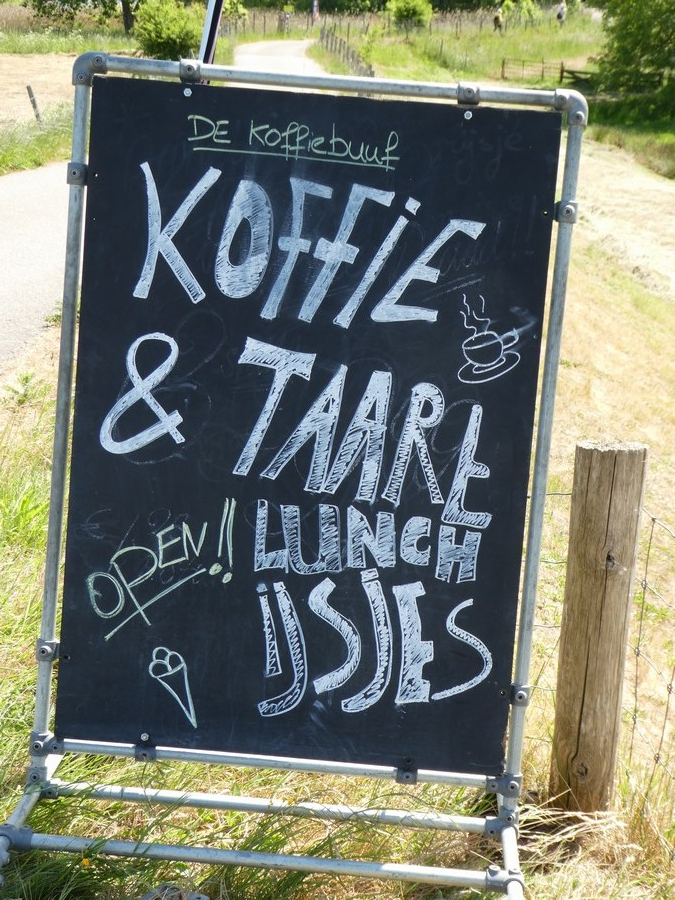 DE Koffiebuuf
KOFFiE
& TAARt
LUNCH
OPEN!!
IJSJES